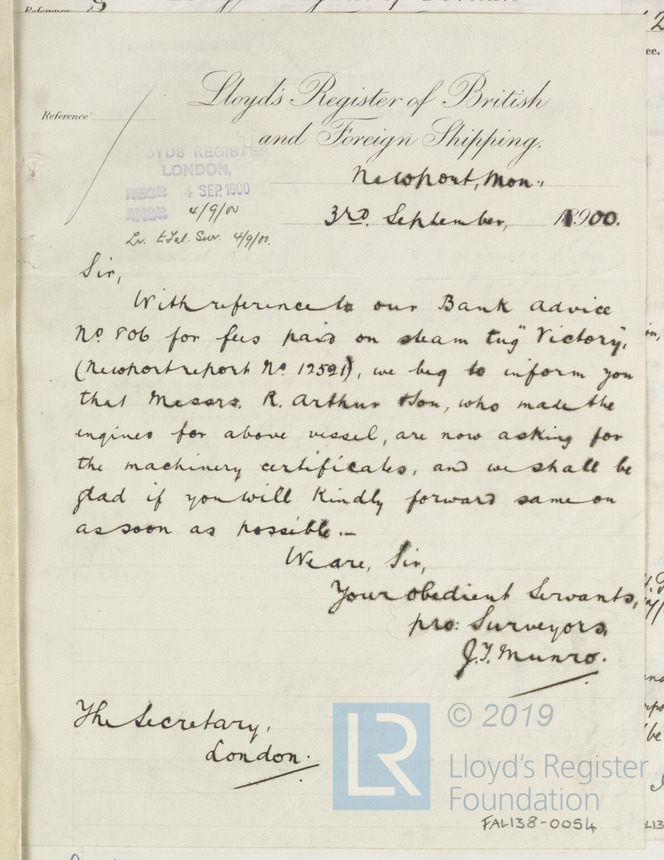 Reference
Lloyd's Register of British
and Foreign Shipping.
LOYDS REGISTER
LONDON,
RECD 4 SEP. 1900
ANSD 4/9/00
Lr. to Sur. 4/9/00.
Newport, Mon.,
3rd. September, 1900.
Sir,
With reference to our Bank advice
No. 806 for fees paid on steam tug "Victory",
(Newport report No. 12521), we beg to inform you
that Messrs. R. Arthur & Son, who made the
engines for above vessel, are now asking for
the machinery certificates, and we shall be
glad if you will kindly forward same on
as soon as possible.—
We are, Sir,
Your obedient Servants,
pro: Surveyors,
J.T. Munro.
The Secretary,
London.
LR
© 2019
Lloyd's Register
Foundation
FAL138-0054